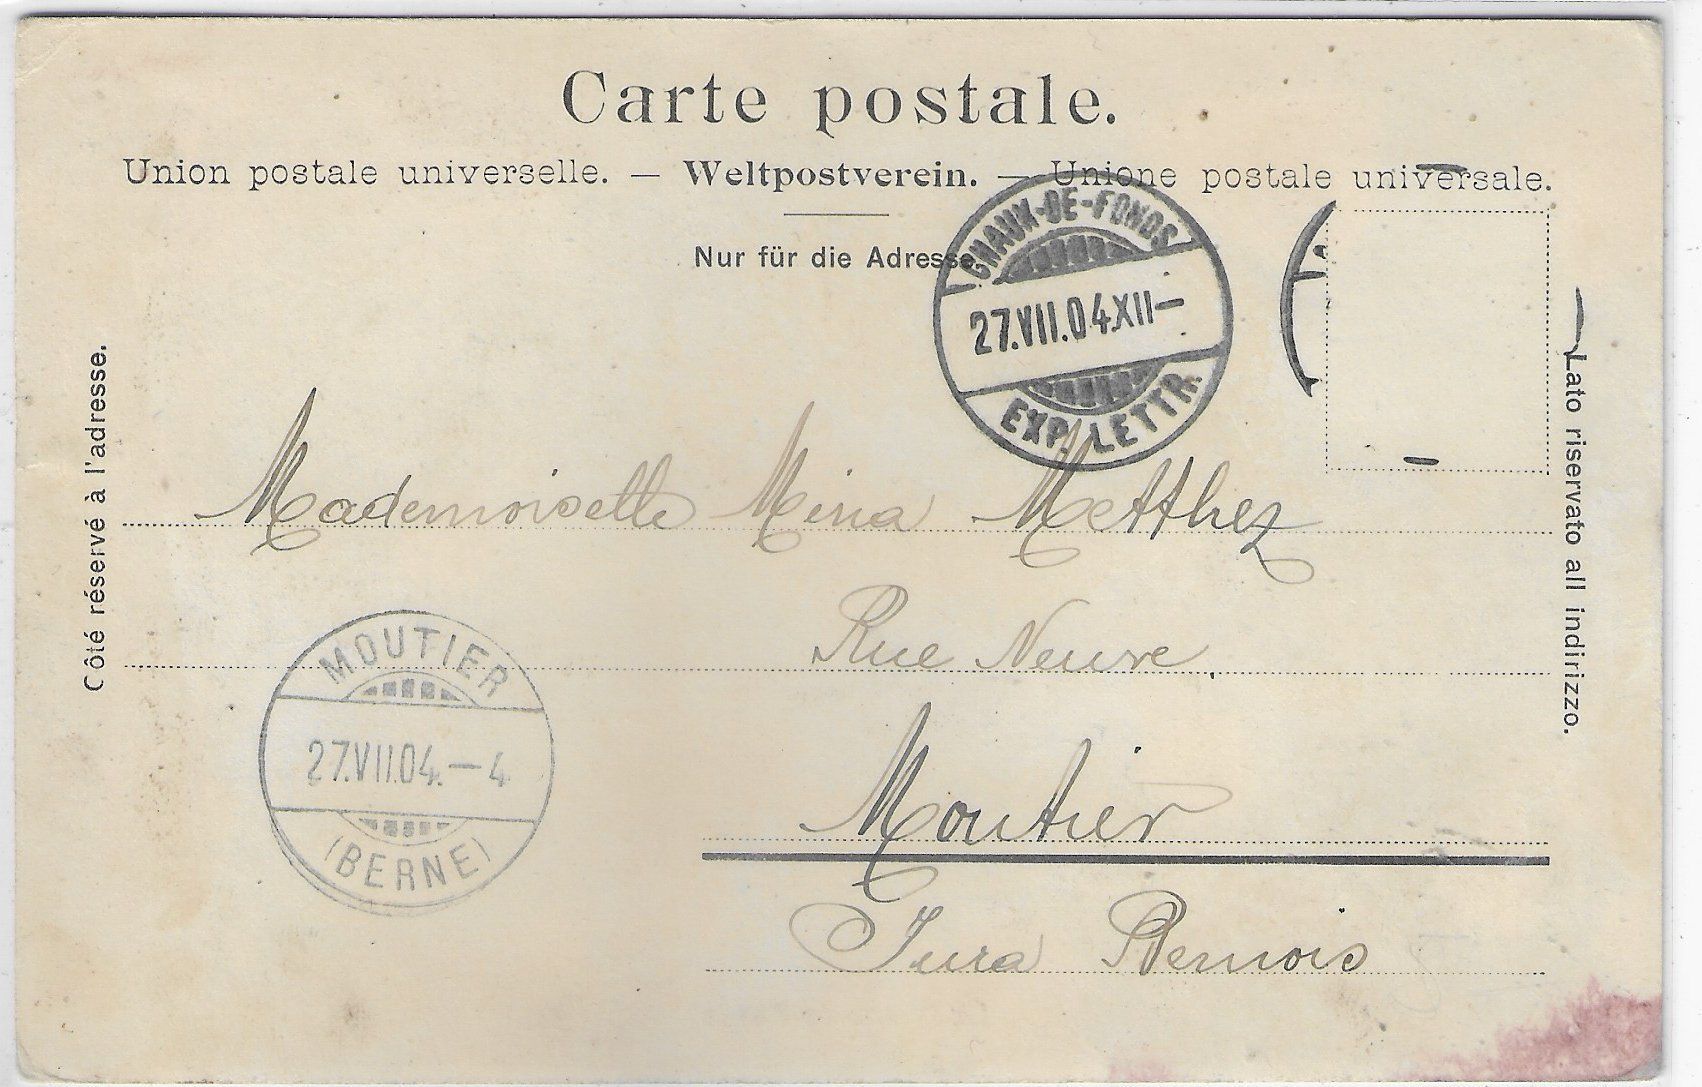 Carte postale.
Union postale universelle. — Weltpostverein. — Unione postale universale.
Nur für die Adresse.
CHAUX-DE-FONDS
27.VII.04.XII—
EXP. LETTR.
Côté réservé à l'adresse.
Lato riservato all indirizzo.
Mademoiselle Mina Metthez
Rue Neuve
MOUTIER
27.VII.04.—4
(BERNE)
Moutier
Jura Bernois